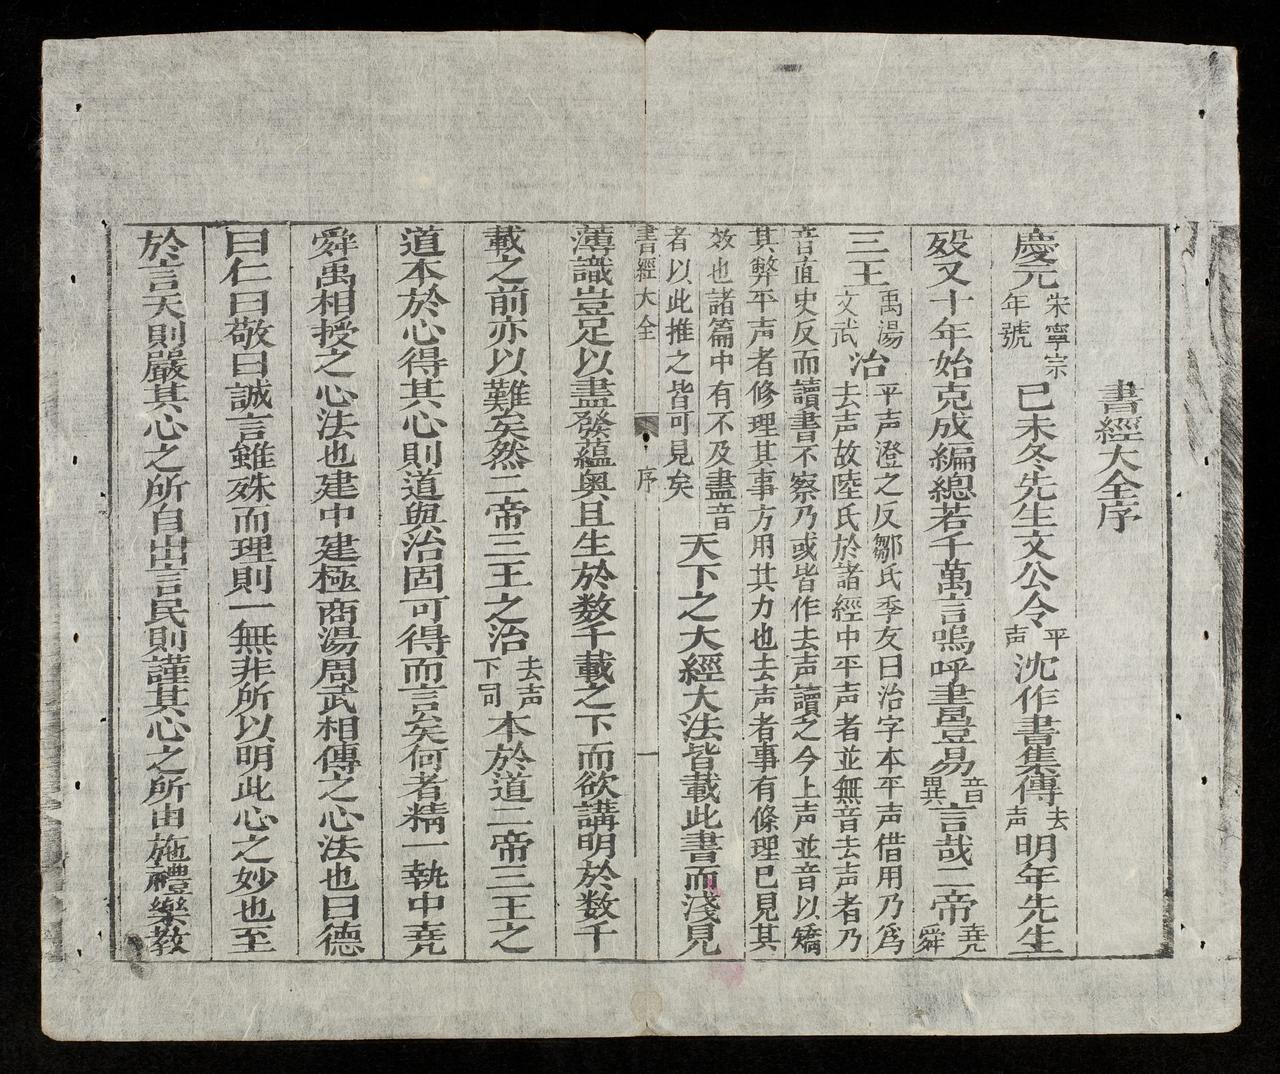 書經大全序
慶元宋寧宗年號已未冬先生文公令平声沈作書集傳去声明年先生
殁又十年始克成編總若千萬言嗚呼書豈易音異言哉二帝堯舜
三王禹湯文武治平声澄之反鄒氏季友曰治字本平声借用乃為去声故陸氏於諸經中平声者並無音去声者乃
音直史反而讀書不察乃或皆作去声讀之今上声並音以矯其弊平声者修理其事方用其力也去声者事有條理已見其
效也諸篇中有不及盡音者以此推之皆可見矣天下之大經大法皆載此書而淺見
書經大全 序 一
薄識豈足以盡發蘊奧且生於数千載之下而欲講明於数千
載之前亦以難矣然二帝三王之治去声下同本於道二帝三王之
道本於心得其心則道與治固可得而言矣何者精一執中堯
舜禹相授之心法也建中建極商湯周武相傳之心法也曰德
曰仁曰敬曰誠言雖殊而理則一無非所以明此心之妙也至
於言天則嚴其心之所自出言民則謹其心之所由施禮樂教